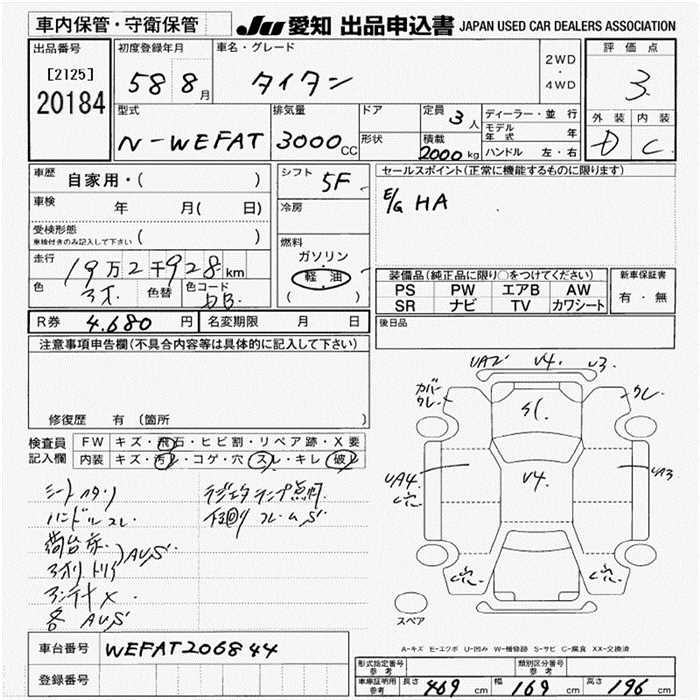 車内保管・守衛保管
JU 愛知 出品申込書 JAPAN USED CAR DEALERS ASSOCIATION
出品番号
[2125]
20184
初度登録年月
58 8月
車名・グレード
タイタン
2WD
・
4WD
評価点
3
外装 内装
D C
型式
N-WEFAT
排気量
3000cc
ドア
形状
定員 3人
積載
2000kg
ディーラー・並行
モデル年式 年
ハンドル 左・右
車歴 自家用・( )
車検 年 月( 日)
受検形態
車検付きのみ記入して下さい ( )
走行 19万2千928km
色 アオ 色替 色コード DB
シフト 5F
冷房
燃料
ガソリン
・
軽油
( )
セールスポイント(正常に機能するものに限ります)
E/G HA
装備品(純正品に限り○をつけてください)
PS PW エアB AW
SR ナビ TV カワシート
新車保証書
有・無
後日品
R券 4.680円 名変期限 月 日
注意事項申告欄(不具合内容等は具体的に記入して下さい)
修復歴 有 (箇所 )
検査員記入欄
FW キズ・飛石・ヒビ割・リペア跡・X要
内装 キズ・汚レ・コゲ・穴・スレ・キレ・破レ
シートハタリ
ハンドルスレ
荷台床
アオリトリイ
AUS
アンテナX
各 AUS
ラジエタランプ点灯
下回り フレームS
UA2 V4. U3
カバーワレ
ワレ
S1.
UA4
V4.
UA3
スペア
A-キズ E-エクボ U-凹み W-補修跡 S-サビ C-腐食 XX-交換済
車台番号 WEFAT206844
登録番号
形式指定番号 参考
類別区分番号 参考
車庫証明用 参考 長さ 469cm 幅 169cm 高さ 196cm